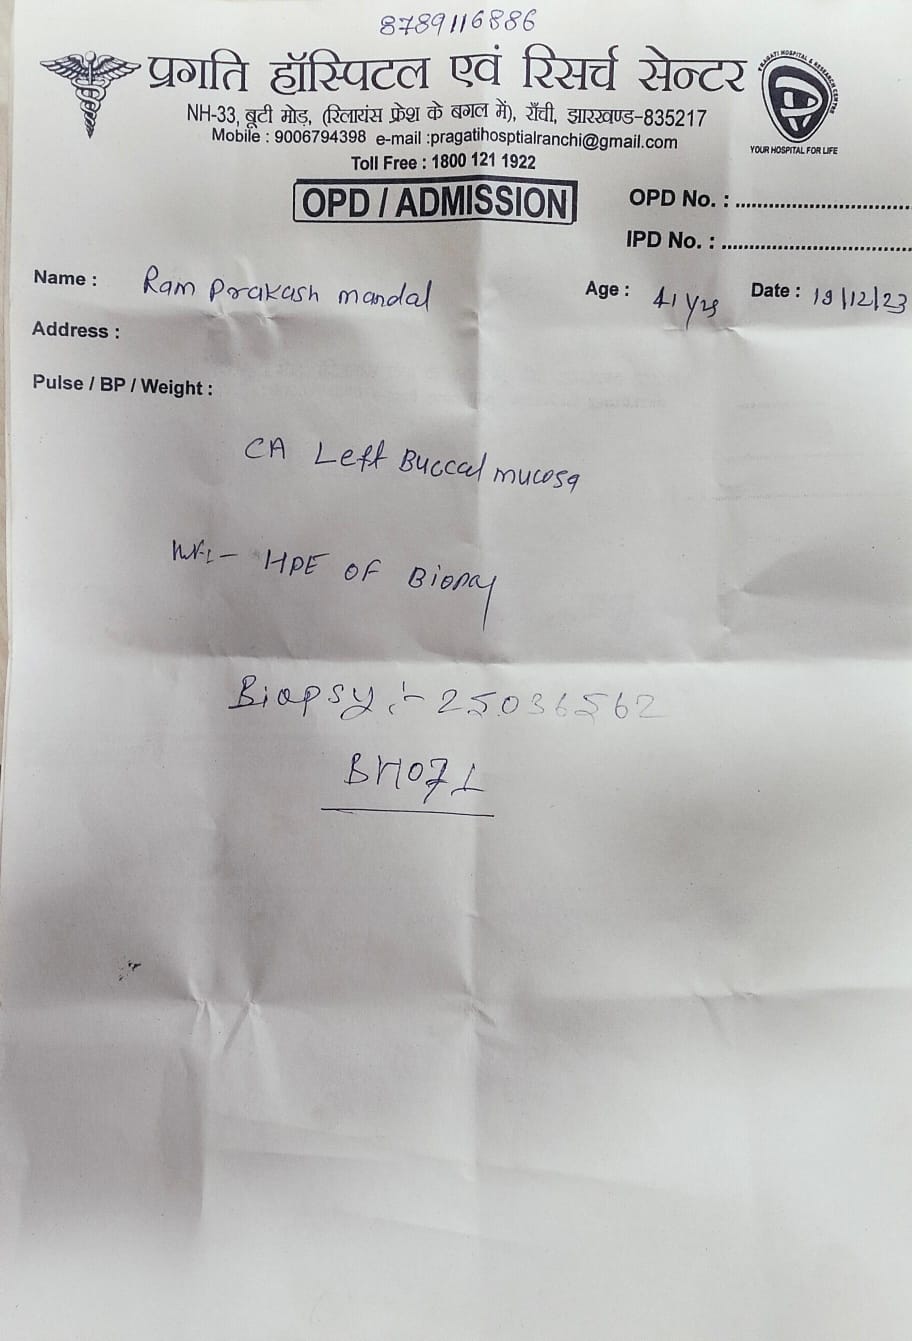 8789116886
प्रगति हॉस्पिटल एवं रिसर्च सेन्टर
NH-33, बूटी मोड़, (रिलायंस फ्रेश के बगल में), राँची, झारखण्ड-835217
Mobile : 9006794398 e-mail :pragatihosptialranchi@gmail.com
Toll Free : 1800 121 1922
PRAGATI HOSPITAL & RESEARCH CENTRE
YOUR HOSPITAL FOR LIFE
OPD / ADMISSION
OPD No. :
IPD No. :
Name : Ram Prakash mandal Age : 41 yrs Date : 19/12/23
Address :
Pulse / BP / Weight :
CA Left Buccal mucosa
HPE OF Biopsy
Biopsy :- 25036562